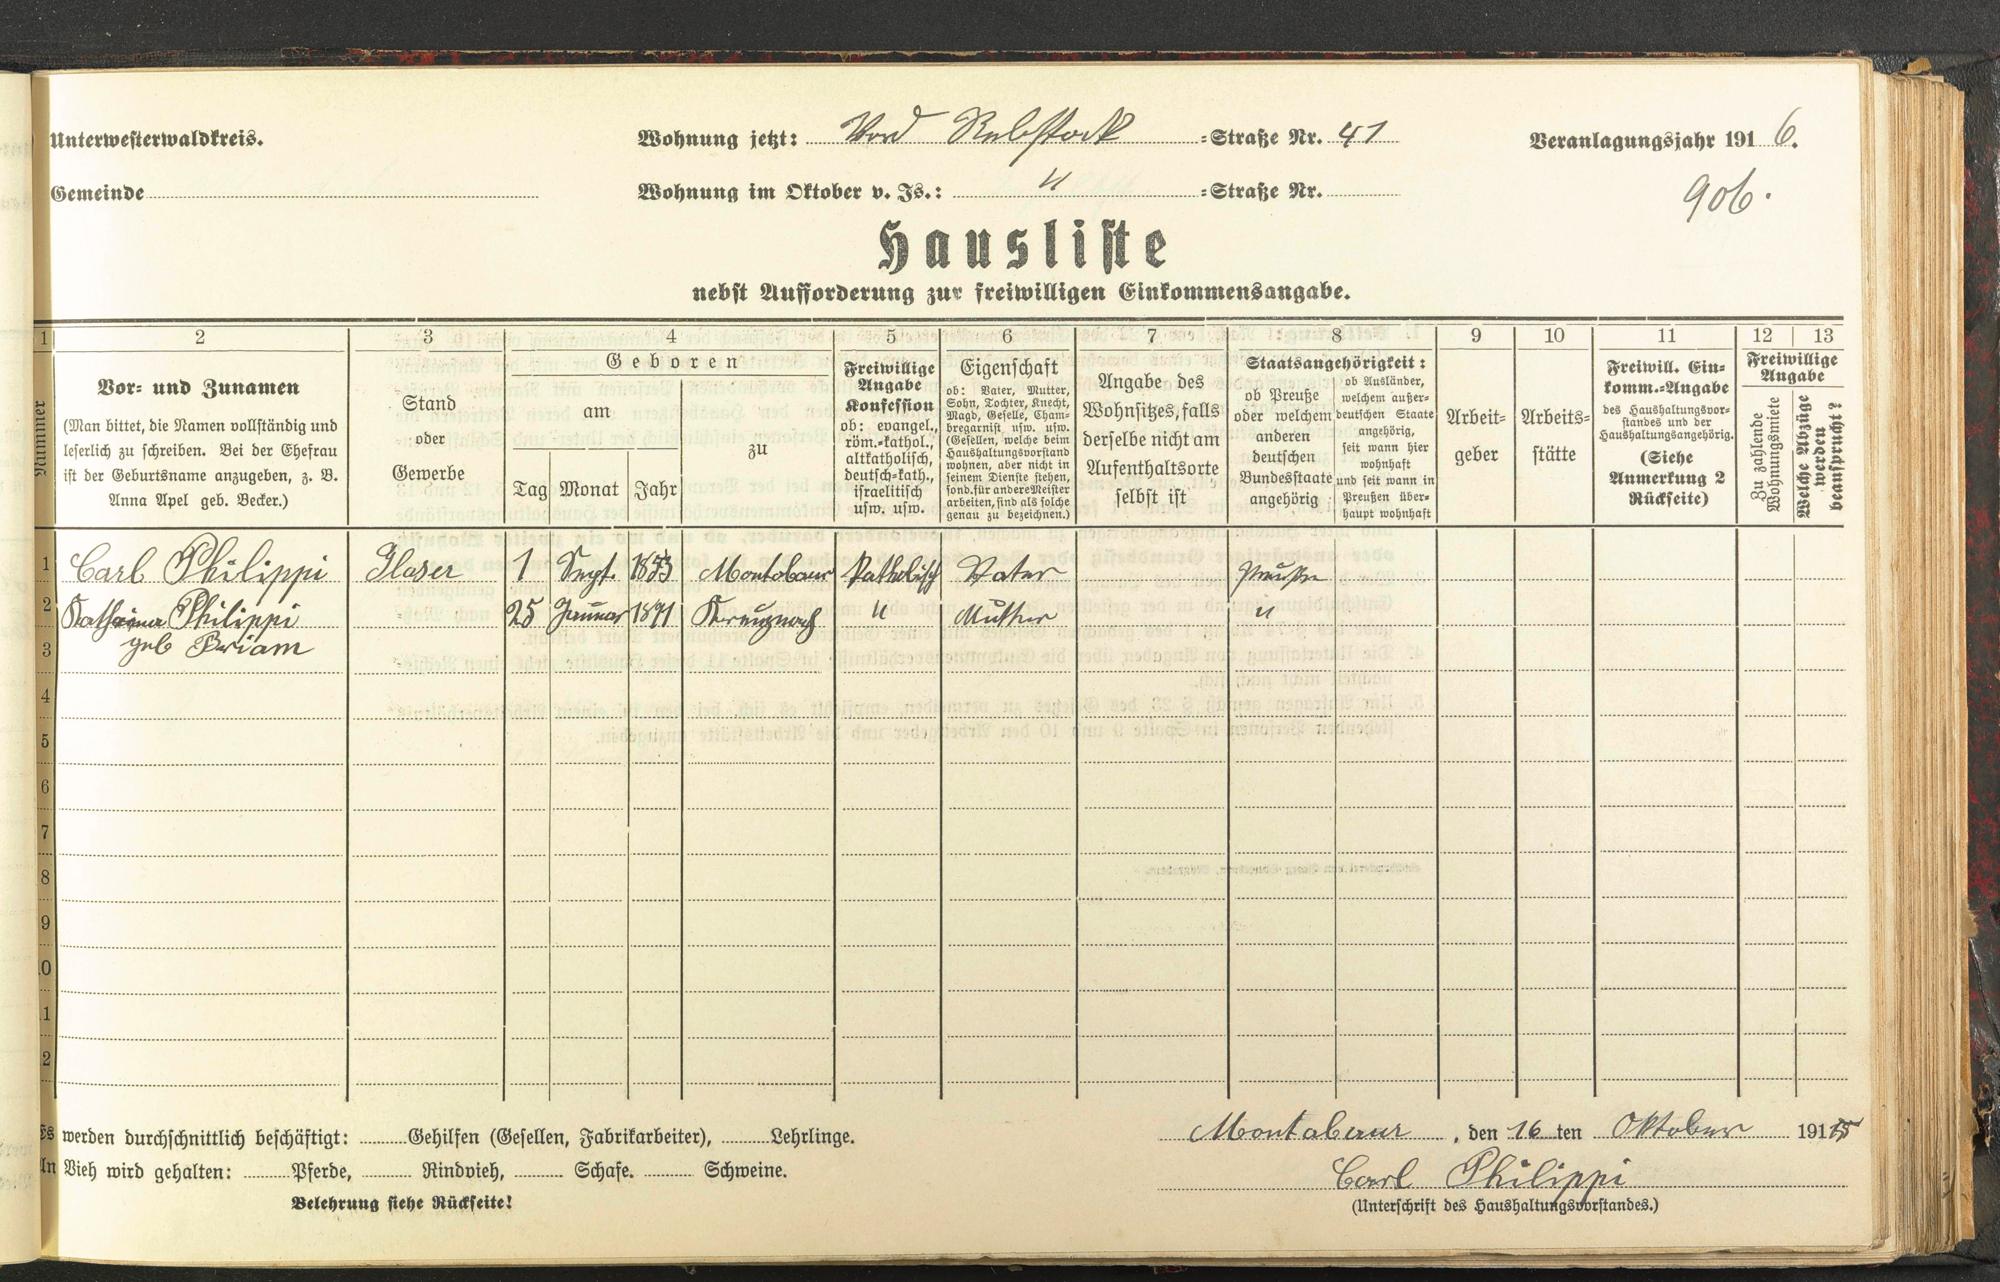 Unterwesterwaldkreis.
Wohnung jetzt: Vord Rebstock =Straße Nr. 41
Veranlagungsjahr 1916.
Gemeinde
Wohnung im Oktober v. Js.: " =Straße Nr.
906.
Hausliste
nebst Aufforderung zur freiwilligen Einkommensangabe.
1 2 3 4 5 6 7 8 9 10 11 12 13
Nummer
Vor- und Zunamen
(Man bittet, die Namen vollständig und
leserlich zu schreiben. Bei der Ehefrau
ist der Geburtsname anzugeben, z. B.
Anna Apel geb. Becker.)
Stand
oder
Gewerbe
Geboren
am
Tag Monat Jahr
zu
Freiwillige
Angabe
Konfession
ob: evangel.,
röm.-kathol.,
altkatholisch,
deutsch-kath.,
israelitisch
usw. usw.
Eigenschaft
ob: Vater, Mutter,
Sohn, Tochter, Knecht,
Magd, Geselle, Cham-
bregarnist usw. usw.
(Gesellen, welche beim
Haushaltungsvorstand
wohnen, aber nicht in
seinem Dienste stehen,
sond. für andere Meister
arbeiten, sind als solche
genau zu bezeichnen.)
Angabe des
Wohnsitzes, falls
derselbe nicht am
Aufenthaltsorte
selbst ist
Staatsangehörigkeit:
ob Preuße
oder welchem
anderen
deutschen
Bundesstaate
angehörig
ob Ausländer,
welchem außer-
deutschen Staate
angehörig,
seit wann hier
wohnhaft
und seit wann in
Preußen über-
haupt wohnhaft
Arbeit-
geber
Arbeits-
stätte
Freiwill. Ein-
komm.-Angabe
des Haushaltungsvor-
standes und der
Haushaltungsangehörig.
(Siehe
Anmerkung 2
Rückseite)
Freiwillige
Angabe
Zu zahlende
Wohnungsmiete
Welche Abzüge
werden
beansprucht?
1 Carl Philippi Glaser 1 Sept. 1873 Montabaur katholisch Vater Preuße
2 Katharina Philippi 25 Januar 1871 Kreuznach " Mutter "
3 geb Briam
4
5
6
7
8
9
10
11
12
Es werden durchschnittlich beschäftigt: Gehilfen (Gesellen, Fabrikarbeiter), Lehrlinge.
Montabaur, den 16 ten Oktober 1915
An Vieh wird gehalten: Pferde, Rindvieh, Schafe. Schweine.
Carl Philippi
Belehrung siehe Rückseite!
(Unterschrift des Haushaltungsvorstandes.)